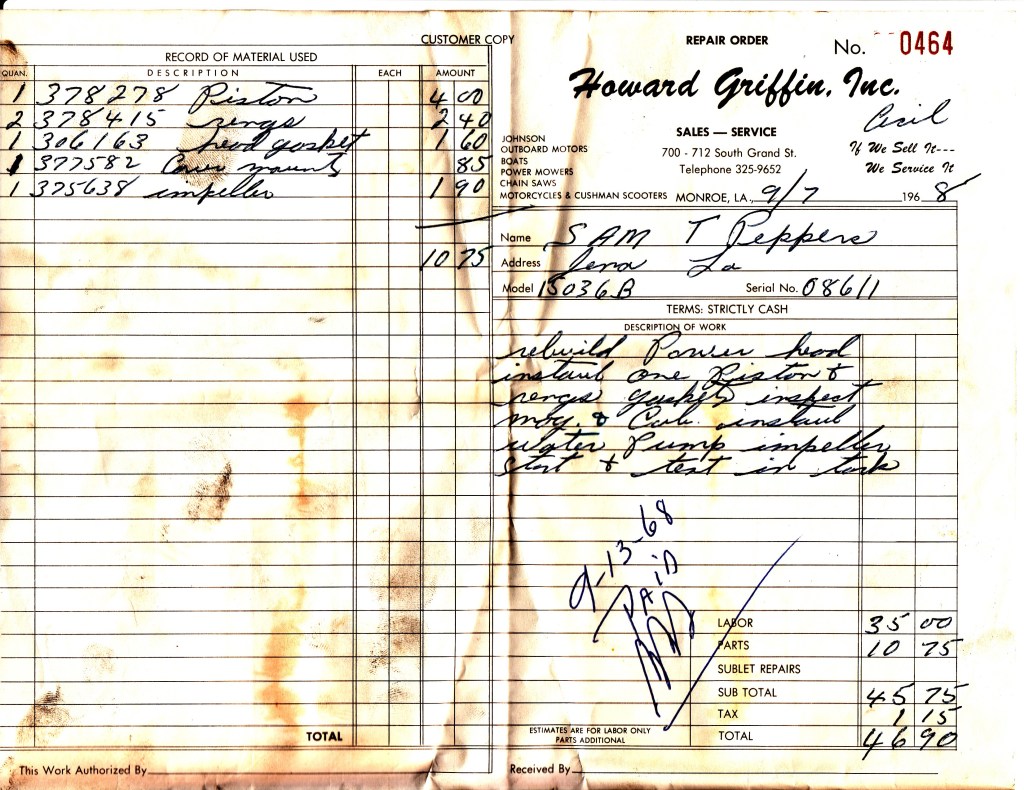 CUSTOMER COPY
RECORD OF MATERIAL USED
QUAN. DESCRIPTION EACH AMOUNT
1 378278 Piston 4 00
2 378415 rengs 2 40
1 306163 head gasket 1 60
1 377582 mounts 85
1 375638 impeller 1 90
10 75
TOTAL
This Work Authorized By
REPAIR ORDER
No. 0464
Howard Griffin, Inc.
Cecil
JOHNSON
OUTBOARD MOTORS
BOATS
POWER MOWERS
CHAIN SAWS
MOTORCYCLES & CUSHMAN SCOOTERS
SALES — SERVICE
700 - 712 South Grand St.
Telephone 325-9652
If We Sell It---
We Service It
MONROE, LA., 9/7 1968
Name SAM T Peppers
Address Jena La
Model 15036B Serial No. 08611
TERMS: STRICTLY CASH
DESCRIPTION OF WORK
rebuild Power head
instaul one Piston &
rengs gaskets inspect
mag. & Carb. instaul
water Pump impeller
start & test in tank
9-13-68
PAiD
LABOR 35 00
PARTS 10 75
SUBLET REPAIRS
SUB TOTAL 45 75
TAX 1 15
TOTAL 46 90
ESTIMATES ARE FOR LABOR ONLY
PARTS ADDITIONAL
Received By